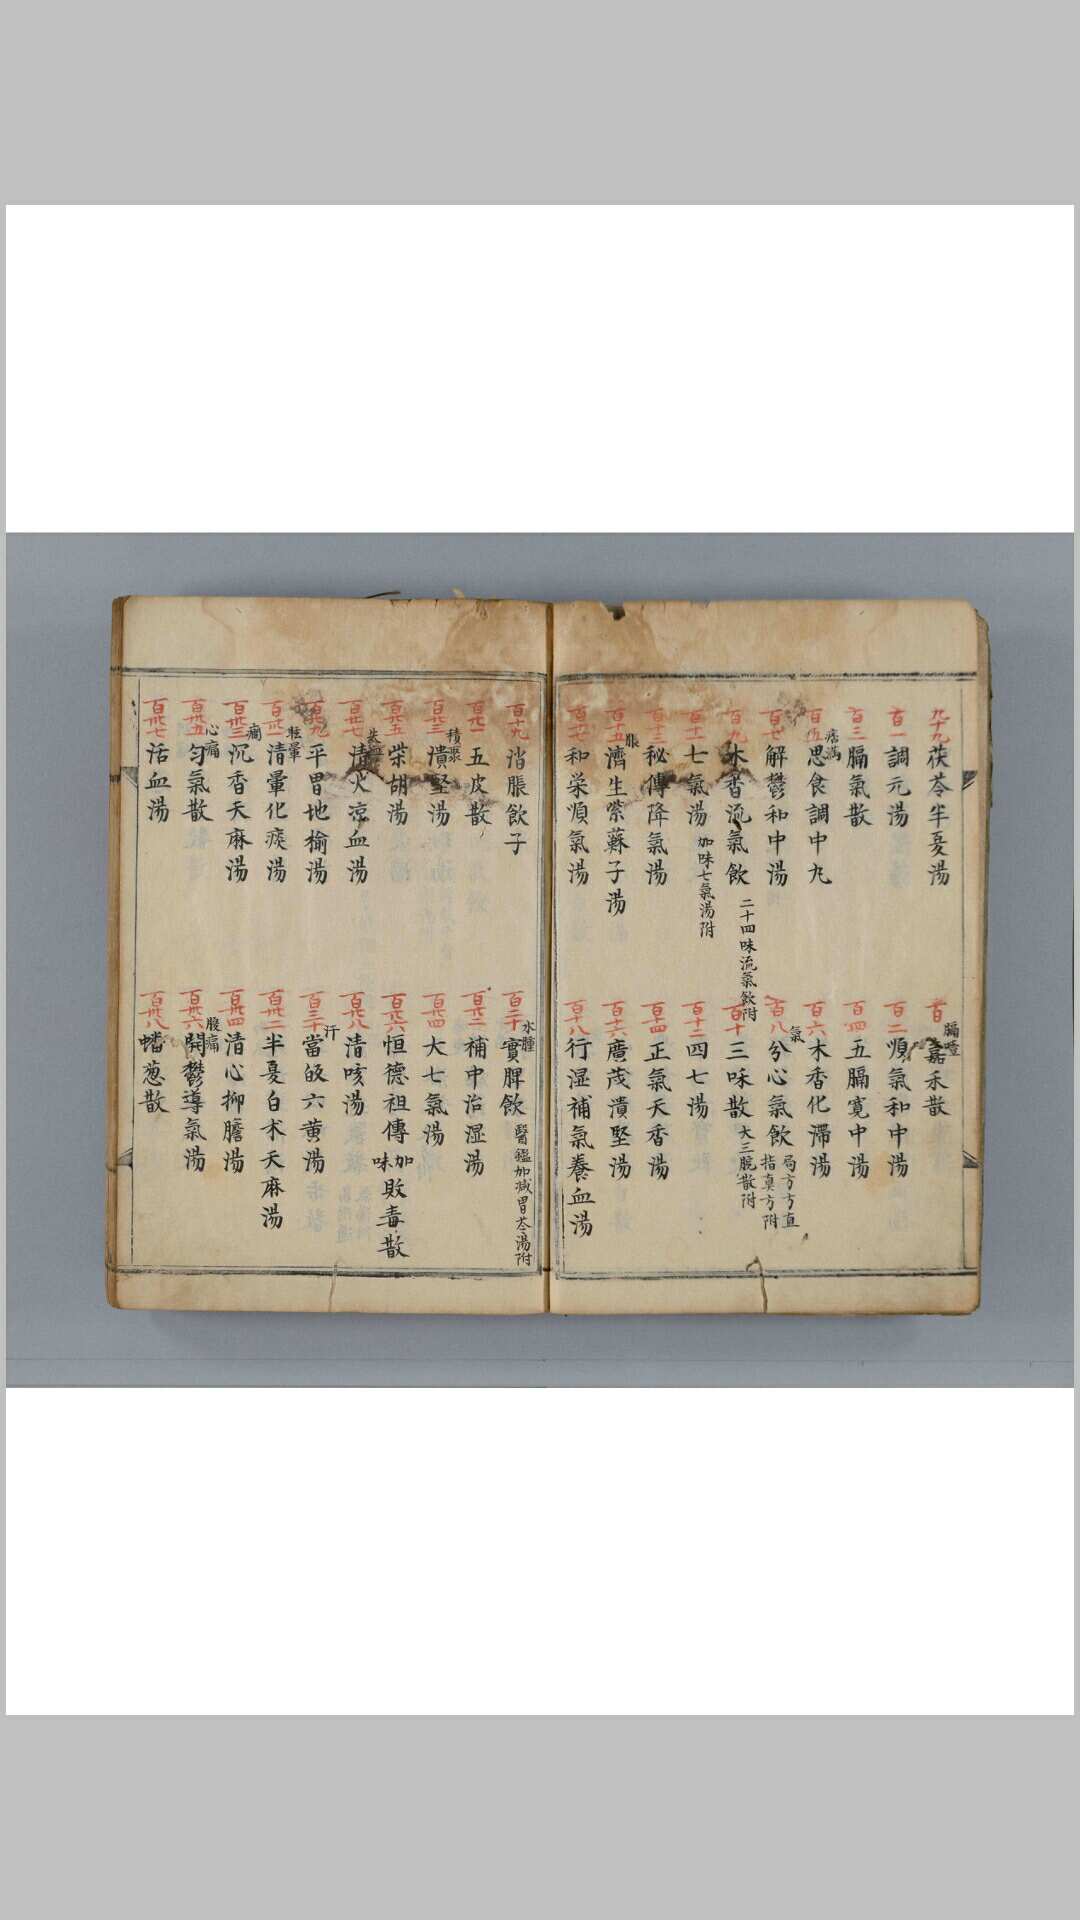 九十九 茯苓半夏湯
膈噎
百 嘉禾散
百一 調元湯
百二 順氣和中湯
百三 膈氣散
百四 五膈寬中湯
痞滿
百五 思食調中丸
百六 木香化滯湯
百七 解鬱和中湯
氣
百八 分心氣飲 局方方直指真方附
百九 木香流氣飲 二十四味流氣飲附
百十 三和散 大三脘散附
百十一 七氣湯 加味七氣湯附
百十二 四七湯
百十三 秘傳降氣湯
百十四 正氣天香湯
脹
百十五 濟生紫蘇子湯
百十六 廣茂潰堅湯
百十七 和栄順氣湯
百十八 行湿補氣養血湯
百十九 消脹飲子
水腫
百二十 實脾飲 醫鑑加减胃苓湯附
百廿一 五皮散
百廿二 補中治湿湯
積聚
百廿三 潰堅湯
百廿四 大七氣湯
百廿五 柴胡湯
百廿六 恒德祖傳加味敗毒散
百廿七 清火涼血湯
百廿八 清咳湯
百廿九 平胃地榆湯
汗
百三十 當皈六黄湯
眩暈
百卅一 清暈化痰湯
百卅二 半夏白朮天麻湯
癇
百卅三 沉香天麻湯
百卅四 清心抑膽湯
心痛
百卅五 匀氣散
腹痛
百卅六 開鬱導氣湯
百卅七 活血湯
百卅八 蟠葱散